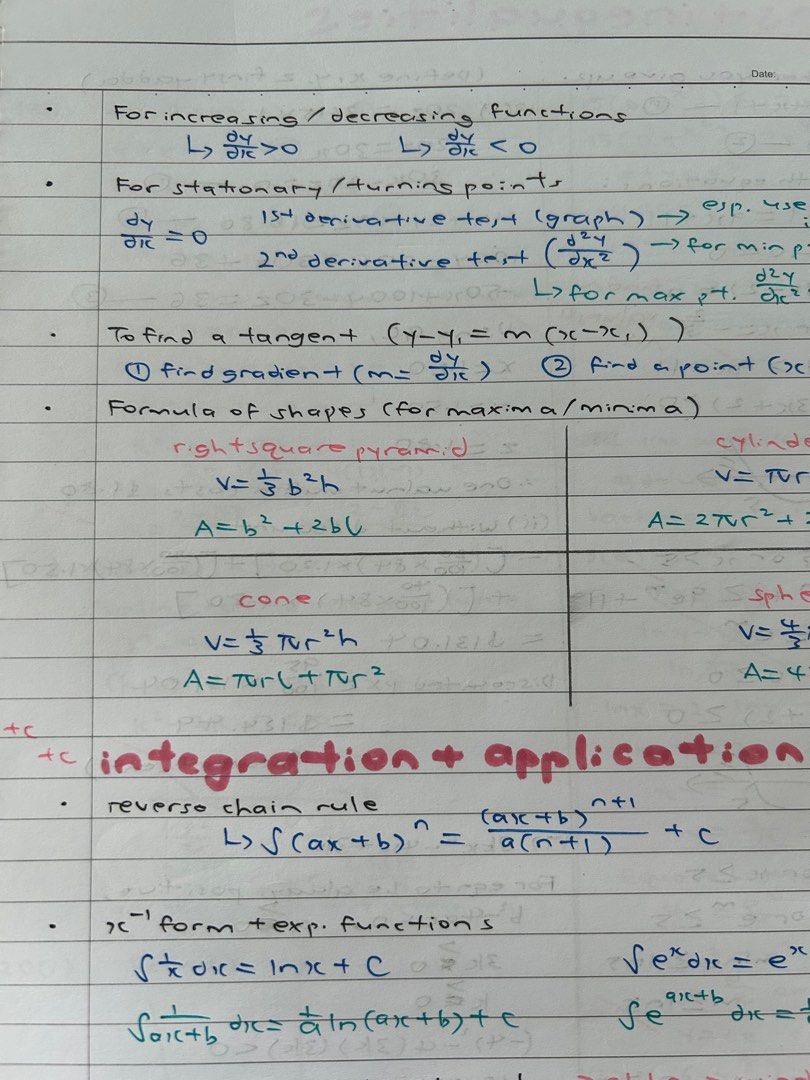 Date:
• For increasing / decreasing functions
↳ dy/dx > 0 ↳ dy/dx < 0
• For stationary / turning points
dy/dx = 0 1st derivative test (graph) → esp. use
2nd derivative test (d²y/dx²) → for min p
↳ for max pt. d²y/dx²
• To find a tangent (y-y₁ = m (x-x₁))
① find gradient (m = dy/dx) ② find a point (x
• Formula of shapes (for maxima/minima)
right square pyramid cylinde
V = 1/3 b²h V = πr
A = b² + 2bl A = 2πr² +
cone sphe
V = 1/3 πr²h V = 4/3
A = πrl + πr² A = 4
+c
+c integration + application
• reverse chain rule
↳ ∫(ax+b)ⁿ = (ax+b)ⁿ⁺¹/a(n+1) + c
• x⁻¹ form + exp. functions
∫ 1/x dx = ln x + C ∫eˣ dx = eˣ
∫ 1/ax+b dx = 1/a ln (ax+b) + c ∫e^ax+b dx =